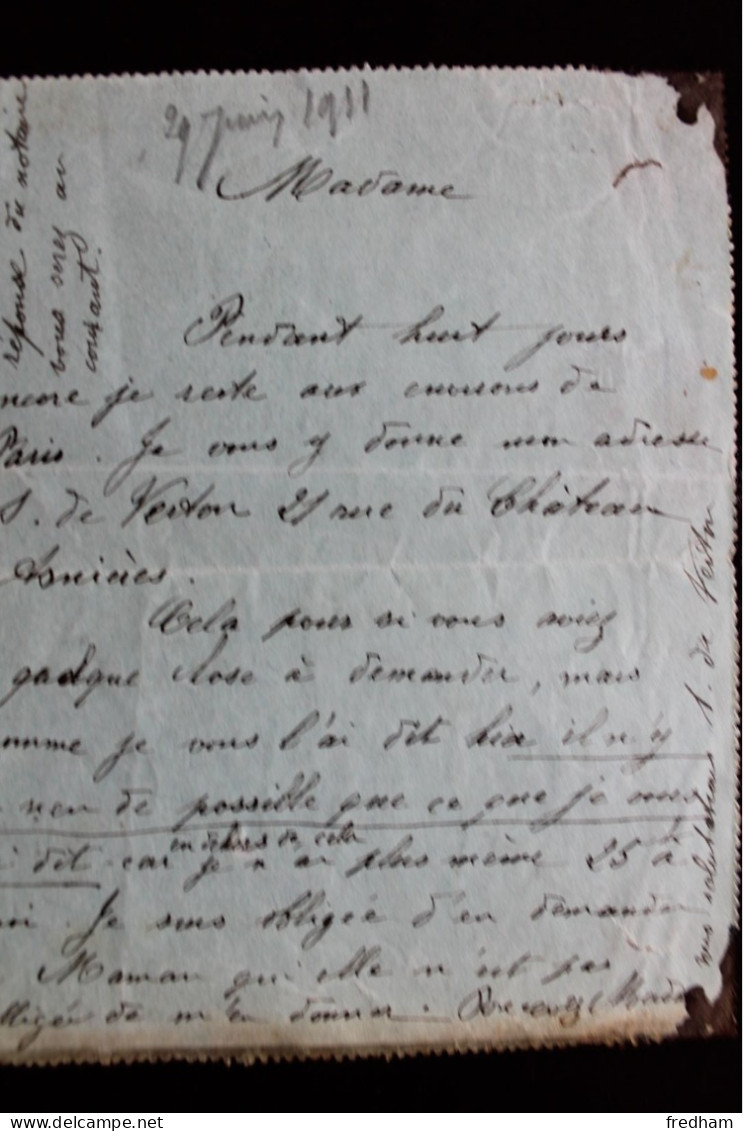 29 juin 1911
Madame
Pendant huit jours
ncore je reste aux environs de
Paris. Je vous y donne mon adresse
S. de Verton 21 rue du Château
Asnières.
Cela pour si vous aviez
quelque chose à demander, mais
omme je vous l'ai dit hier il n'y
rien de possible que ce que je vous
i dit car en dehors de cela je n'ai plus même 25 à
oi. Je suis obligée d'en demander
Maman qui elle n'est pas
bligée de m'en donner. Recevez Mada
mes salutations S. de Verton
réponse du notaire
vous serez au
courant.
fredham